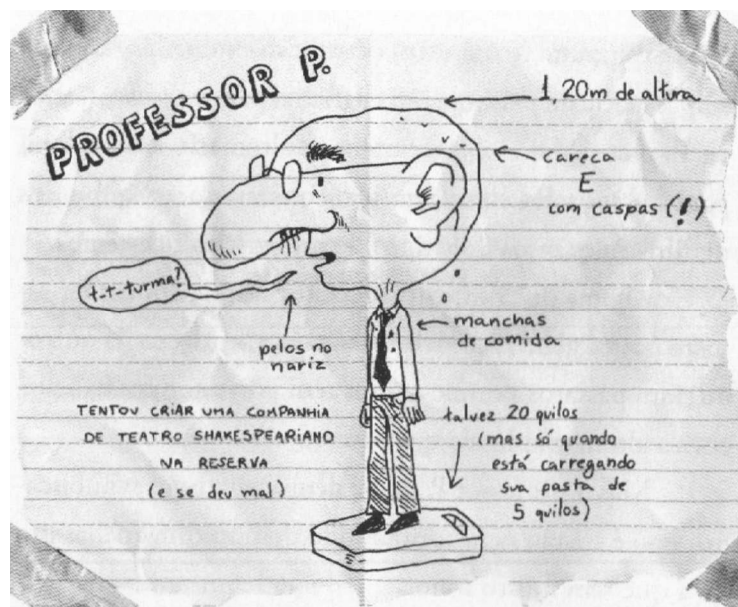 PROFESSOR P.
1,20m de altura
careca
E
com caspas (!)
t-t-turma?
pelos no
nariz
manchas
de comida
TENTOU CRIAR UMA COMPANHIA
DE TEATRO SHAKESPEARIANO
NA RESERVA
(e se deu mal)
talvez 20 quilos
(mas só quando
está carregando
sua pasta de
5 quilos)